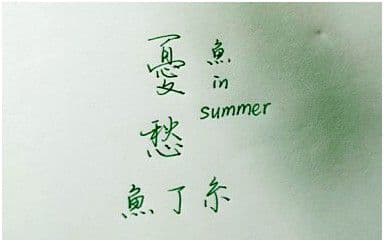 憂愁
魚
in
summer
魚丁糸